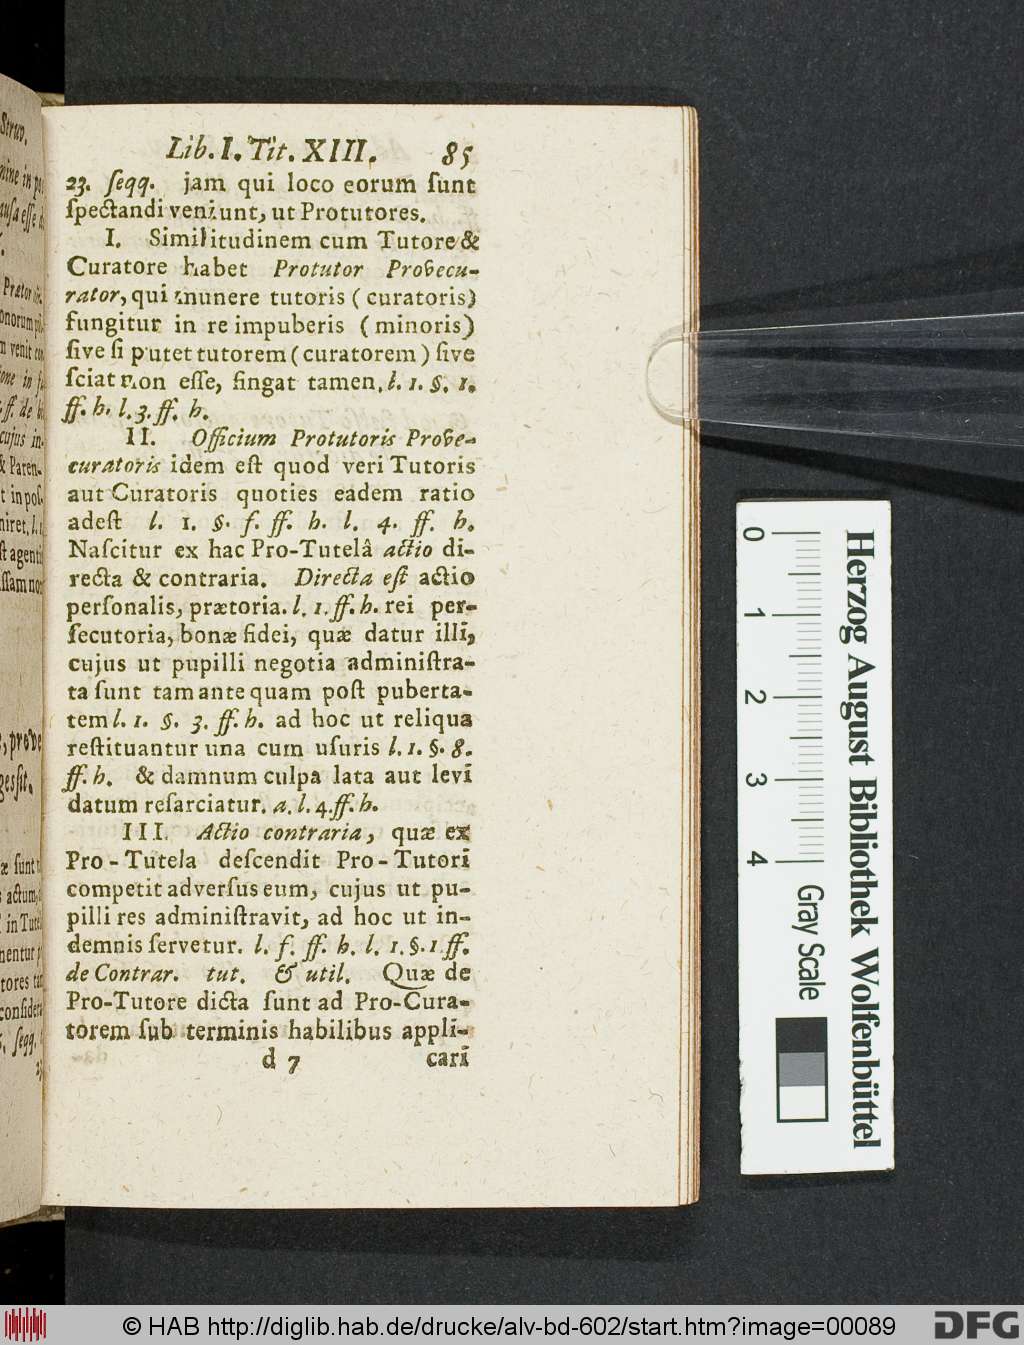 Lib. I. Tit. XIII. 85
23. ſeqq. jam qui loco eorum ſunt
ſpectandi veniunt, ut Protutores.
I. Similitudinem cum Tutore &
Curatore habet Protutor Provecu-
rator, qui munere tutoris (curatoris)
fungitur in re impuberis (minoris)
ſive ſi putet tutorem (curatorem) ſive
ſciat non eſſe, fingat tamen. l. 1. §. 1.
ff. h. l. 3. ff. h.
II. Officium Protutoris Prove-
curatoris idem eſt quod veri Tutoris
aut Curatoris quoties eadem ratio
adeſt l. 1. §. f. ff. h. l. 4. ff. h.
Naſcitur ex hac Pro-Tutelâ actio di-
recta & contraria. Directa eſt actio
perſonalis, prætoria. l. 1. ff. h. rei per-
ſecutoria, bonæ fidei, quæ datur illi,
cujus ut pupilli negotia adminiſtra-
ta ſunt tam ante quam poſt puberta-
tem l. 1. §. 3. ff. h. ad hoc ut reliqua
reſtituantur una cum uſuris l. 1. §. 8.
ff. h. & damnum culpa lata aut levi
datum reſarciatur. a. l. 4. ff. h.
III. Actio contraria, quæ ex
Pro-Tutela deſcendit Pro-Tutori
competit adverſus eum, cujus ut pu-
pilli res adminiſtravit, ad hoc ut in-
demnis ſervetur. l. f. ff. h. l. 1. §. 1 ff.
de Contrar. tut. & util. Quæ de
Pro-Tutore dicta ſunt ad Pro-Cura-
torem ſub terminis habilibus appli-
d 7 cari
0 1 2 3 4
Gray Scale
Herzog August Bibliothek Wolfenbüttel
© HAB http://diglib.hab.de/drucke/alv-bd-602/start.htm?image=00089
DFG